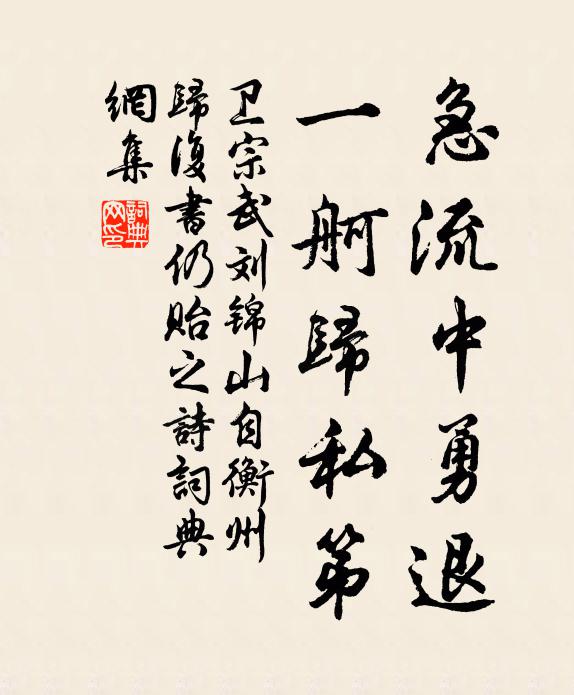 急流中勇退
一舸歸私第
卫宗武刘锦山自衡州
歸復書仍贻之詩詞典
網集
詞典網印